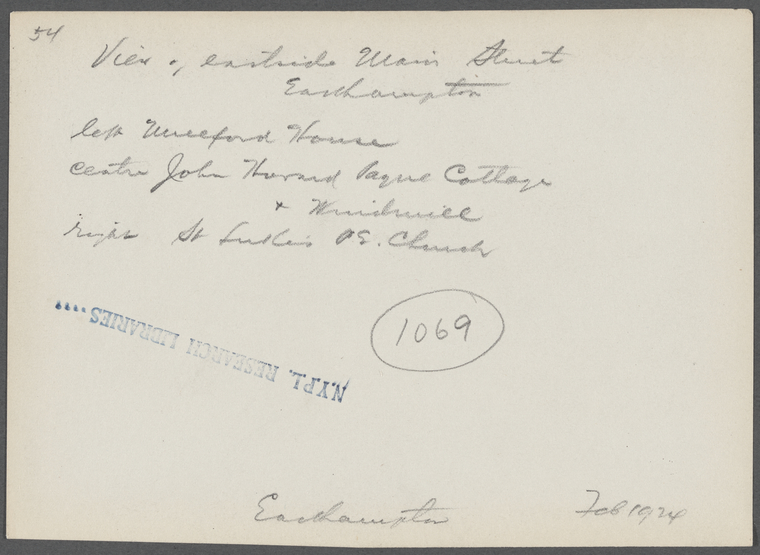 54
View of eastside Main Street
Easthampton
left Mulford House
centre John Howard Payne Cottage
+ Windmill
right St Luke's P.E. Church
1069
N.Y.P.L. RESEARCH LIBRARIES....
Easthampton
Feb 1924